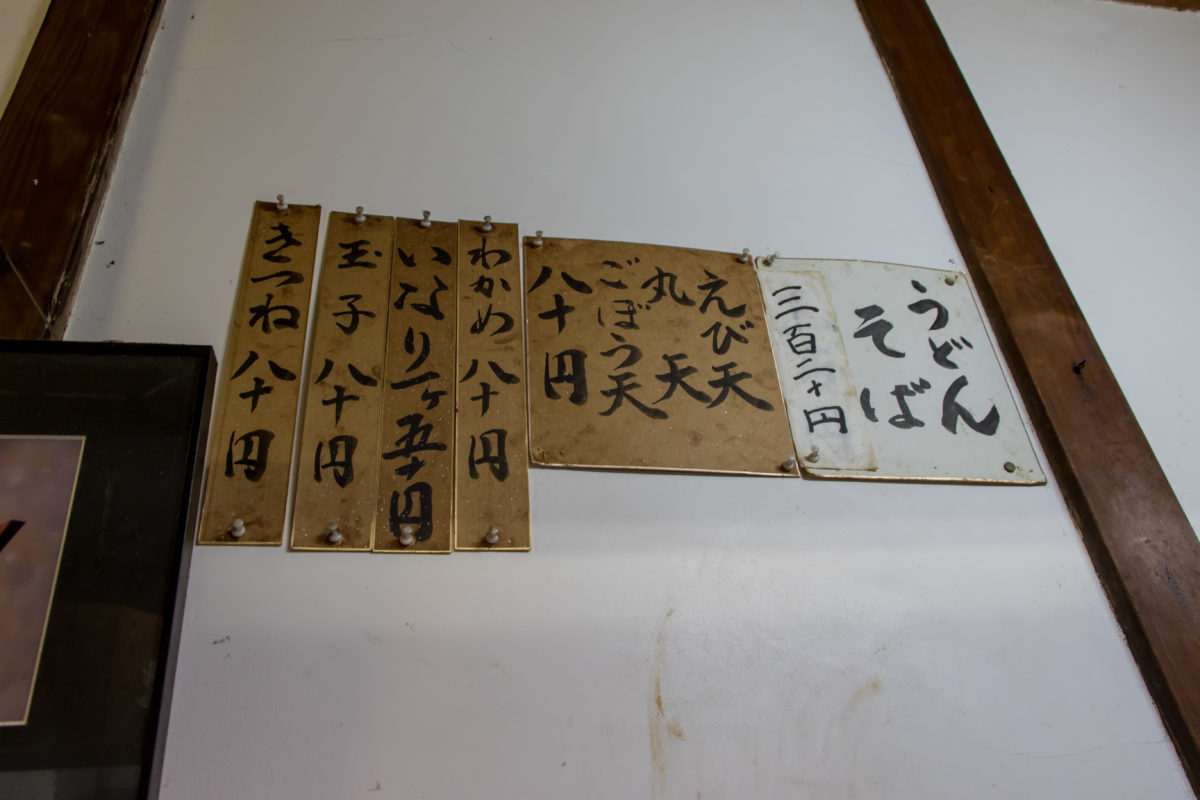 うどん
そば
三百二十円
えび天
丸天
ごぼう天
八十円
わかめ 八十円
いなり一ヶ五十円
玉子 八十円
きつね 八十円